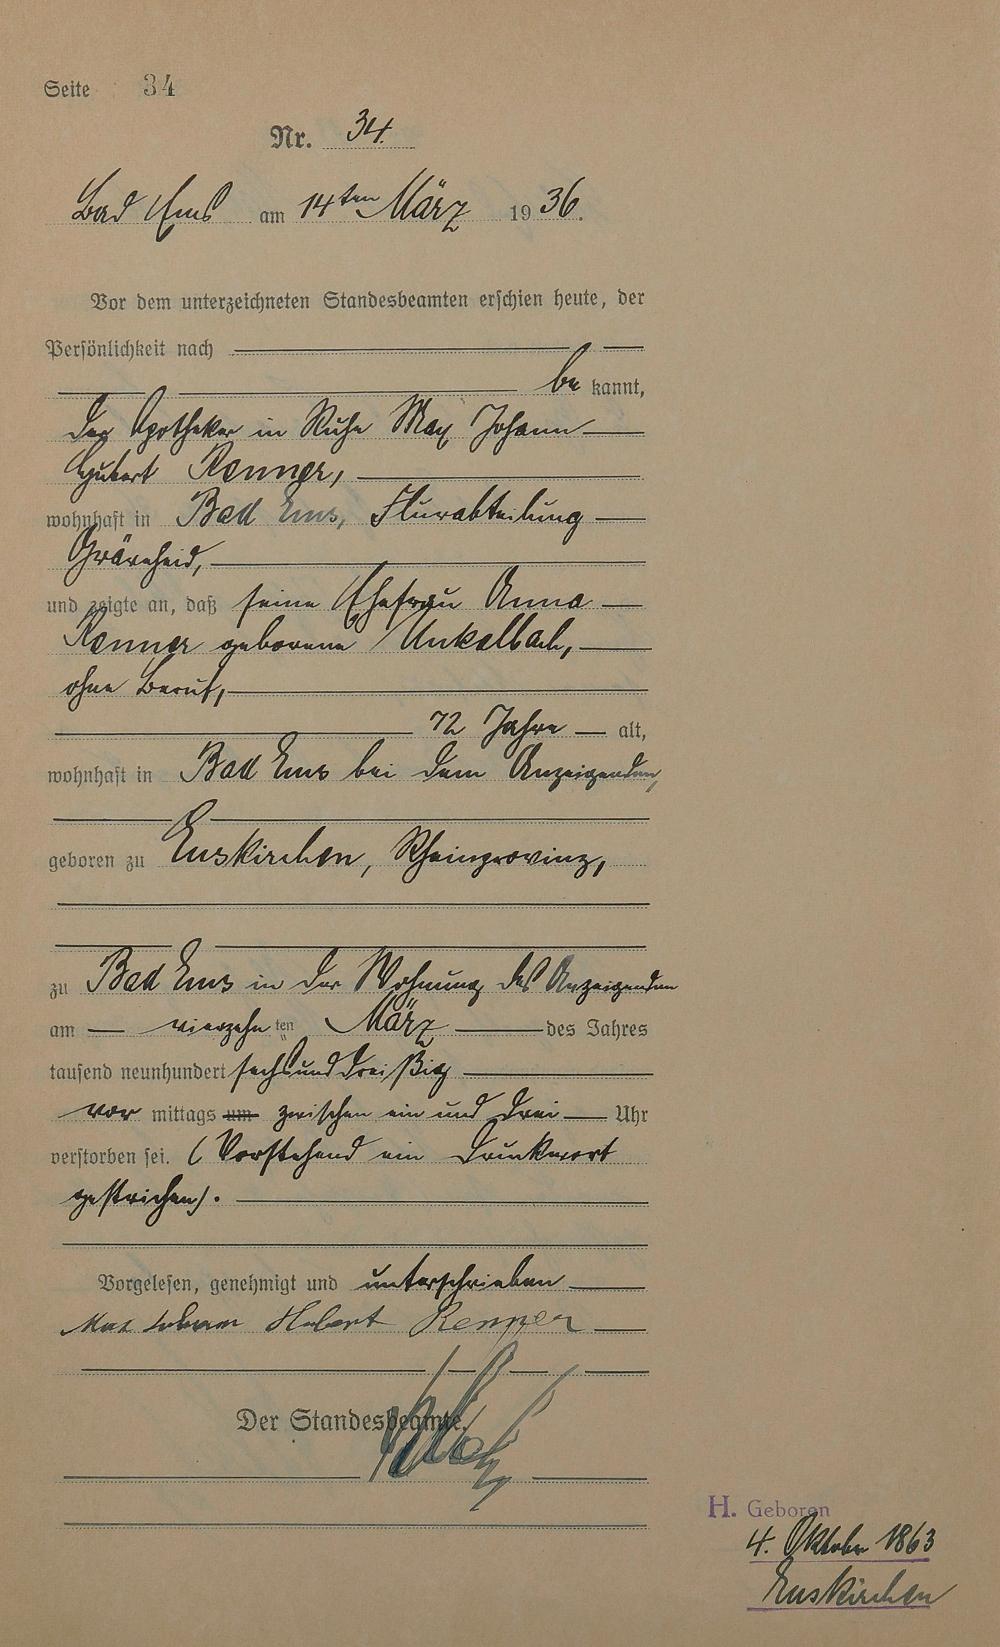 Seite 34
Nr. 34.
Bad Ems am 14ten März 1936.
Vor dem unterzeichneten Standesbeamten erschien heute, der
Persönlichkeit nach
be kannt,
der Apotheker in Ruhe Max Johann
Hubert Renner,
wohnhaft in Bad Ems, Flurabteilung
und zeigte an, daß seine Ehefrau Anna
Renner geborene Unkelbach,
ohne Beruf,
72 Jahre alt,
wohnhaft in Bad Ems bei dem Anzeigenden,
geboren zu Euskirchen, Rheinprovinz,
zu Bad Ems in der Wohnung des Anzeigenden
am vierzehn ten März des Jahres
tausend neunhundert sechsunddreißig
vor mittags um zwischen ein und drei Uhr
verstorben sei. (Vorstehend ein Druckwort
gestrichen).
Vorgelesen, genehmigt und unterschrieben
Max Johann Hubert Renner
Der Standesbeamte.
H. Geboren
4. Oktober 1863
Euskirchen